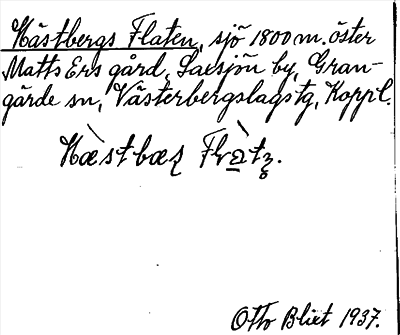 Hästbergs Flaten, sjö 1800 m. öster
Matts Ers gård, Saxsjön by, Gran-
gärde sn, Västerbergslags tg, Koppl.
Otto Blixt 1937.